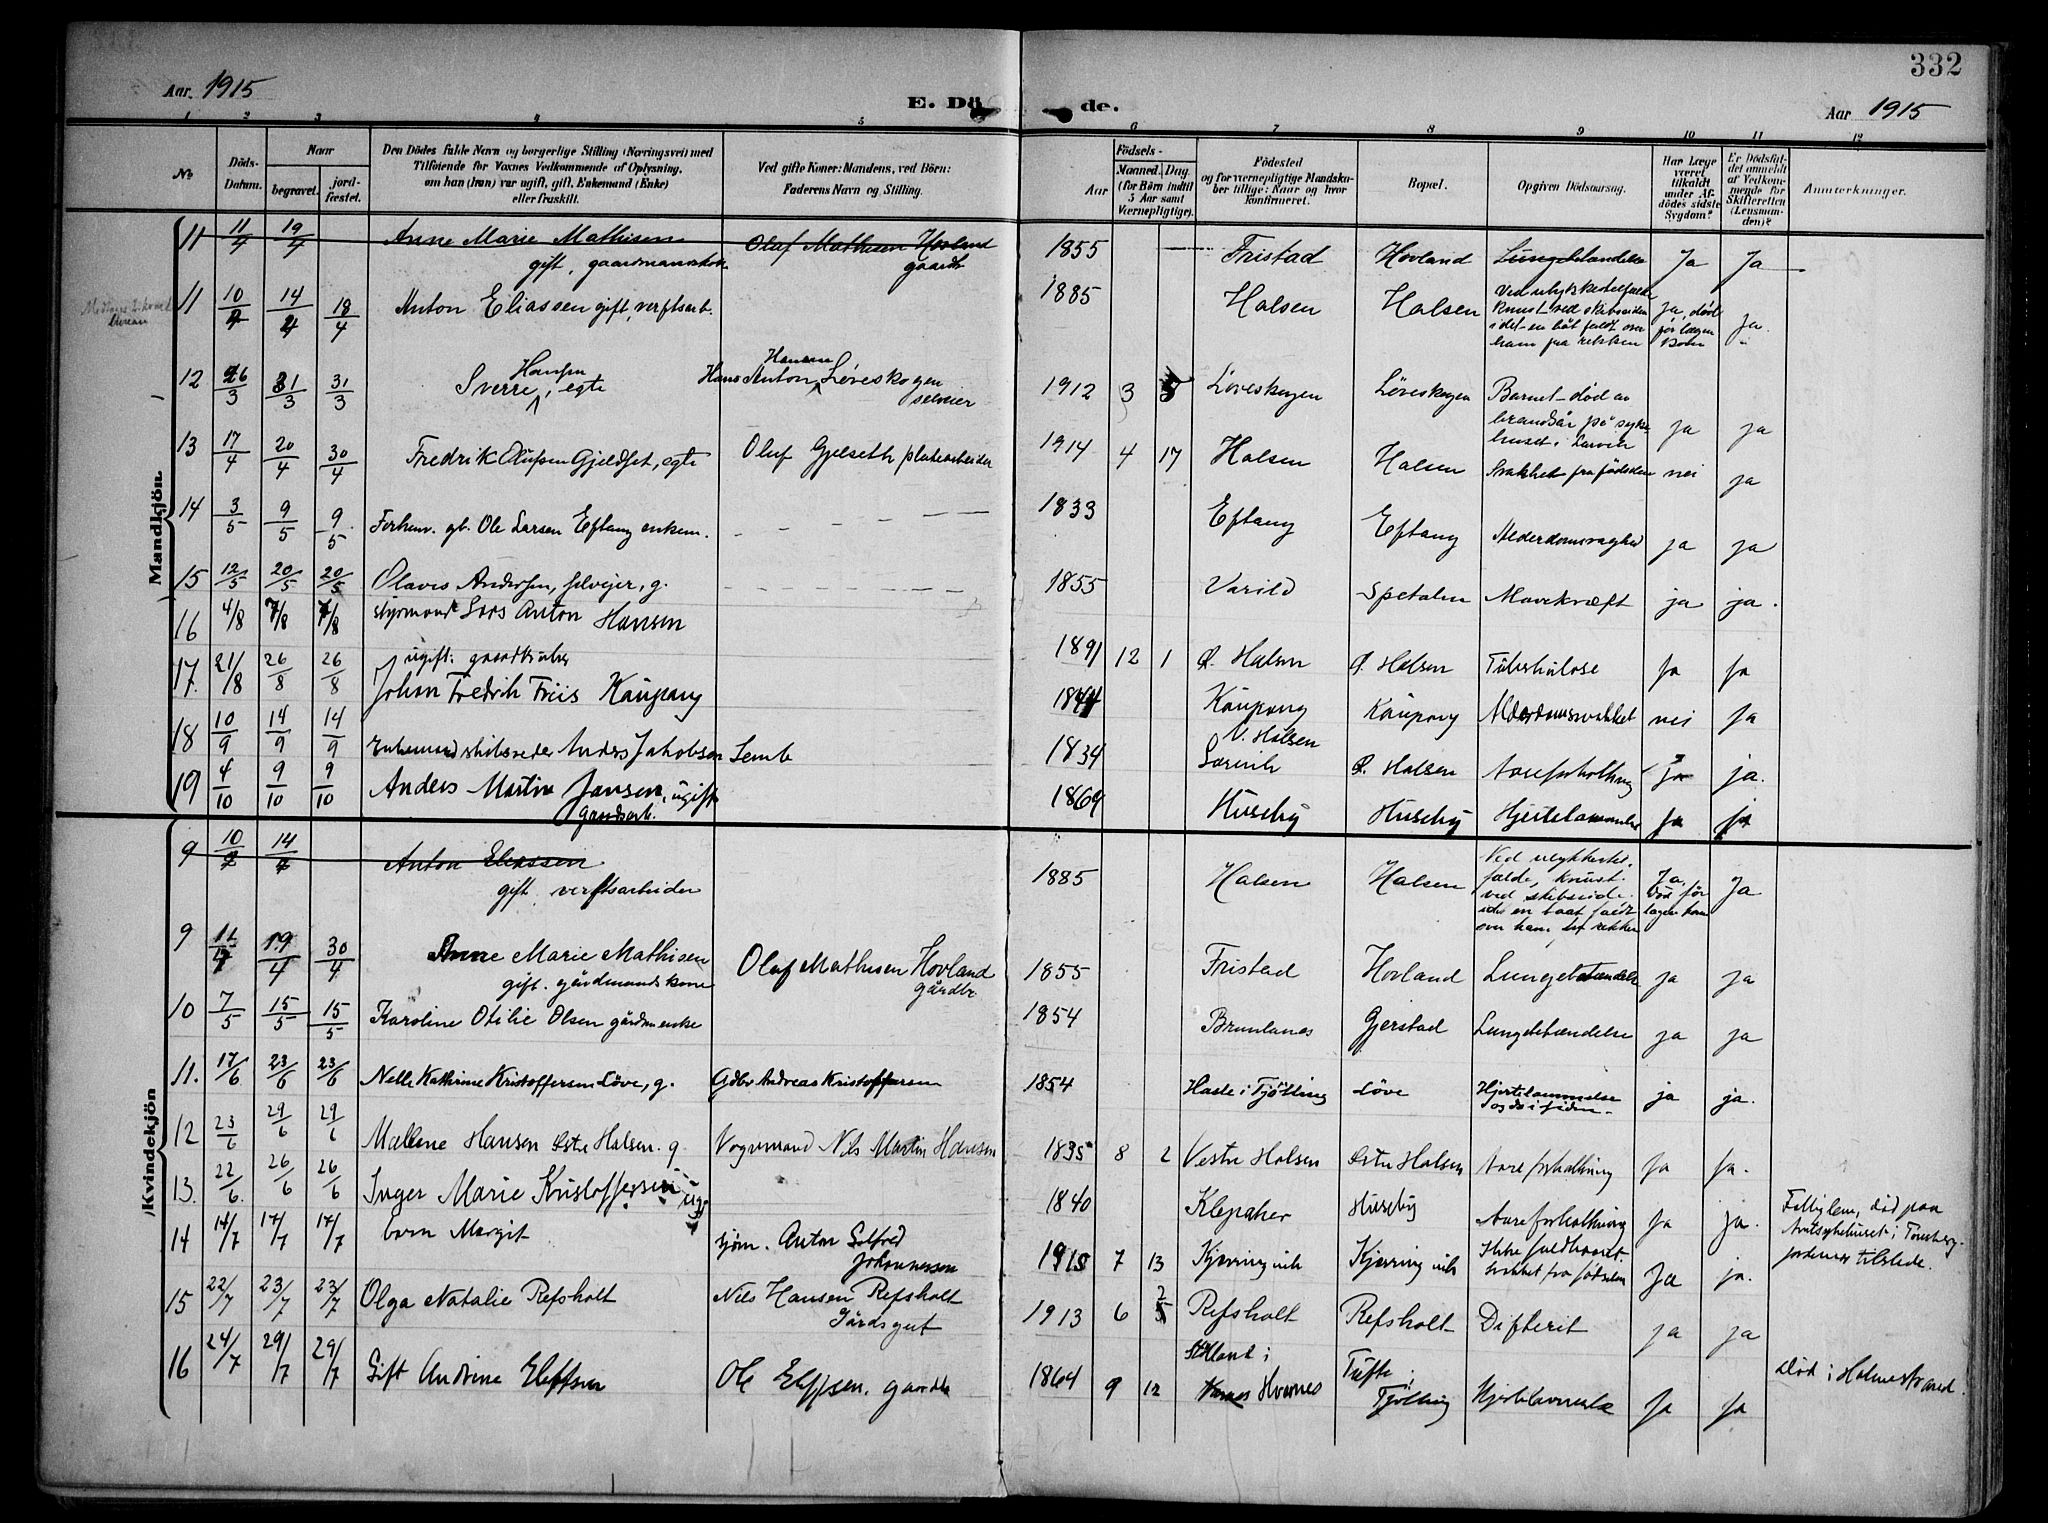 332
Aar. 1915
E. Döde.
Aar 1915
1 2 3 4 5 6 7 8 9 10 11 12
No
Döds-Datum.
Naar
begravet.
jord-fæstet.
Den Dödes fulde Navn og borgerlige Stilling (Næringsvei) med
Tilföiende for Voxnes Vedkommende af Oplysning,
om han (hun) var ugift, gift, Enkemand (Enke)
eller fraskilt.
Ved gifte Koner: Mandens, ved Börn:
Faderens Navn og Stilling.
Aar
Födsels-
Maaned. Dag.
(for Börn indtil
5 Aar samt
Værnepligtige).
Födested
og for værnepligtige Mandska-
ber tillige: Naar og hvor
konfirmeret.
Bopæl.
Opgiven Dödsaarsag.
Har Læge
været
tilkaldt
under Af-
dödes sidste
Sygdom?
Er Dödsfal-
det anmeldt
af Vedkom-
mende for
Skifteretten
(Lensman-
den)?
Anmærkninger.
Mandkjön
11 11/4 19/4 Anne Marie Mathisen Olaf Mathisen Hovland 1855 Fristad Hovland Lungebetændelse Ja Ja
gift, gaardmandskone gaardb
11 10/2 14/2 18/4 Anton Eliassen gift, verftsarb. 1885 Halsen Halsen Ved ulykkestilfælde
knust ved skibssiden Ja, död
idet en båt faldt over för lægen Ja.
ham fra rekken kom
12 26/3 31/3 31/3 Sverre Hansen, egte Hans Anton Hansen Löveskogen 1912 3 5 Löveskogen Löveskogen Barnet död av
selveier
brandsår på syke-
huset i Larvik ja ja
13 17/4 20/4 30/4 Fredrik Olufsen Gjeldset, egte Oluf Gjelseth platearbeider 1914 4 17 Halsen Halsen Svakhet fra födselen nei ja
14 3/5 9/5 9/5 Forhenv. gb. Ole Larsen Eftang enkem. 1833 Eftang Eftang Alderdomssvaghed ja ja
15 12/5 20/5 20/5 Olavis Andersen, selvejer, g. 1855 Varild Spetalen Mavekræft ja ja.
16 4/8 7/8 7/8 styrmand Lars Anton Hansen 1891 12 1 Ö. Halsen Ö. Halsen Tuberkulose Ja Ja
ugift. gaardbruker
17. 21/8 26/8 26/8 Johan Fredrik Friis Kaupang 1844 Kaupang Kaupang Alderdomssvakhet nei Ja
18 10/9 14/9 14/9 Enkemand skibsreder Anders Jakobsen Semb 1834 V. Halsen Larvik Ö. Halsen Aareforkalkning Ja ja.
19 4/10 9/10 9/10 Anders Martin Jansen, ugift 1869 Huseby Huseby Hjertelammelse Ja ja
gaardsarb.
Kvindekjön
9 10/2 14/2 Anton Eliassen 1885 Halsen Halsen Ved ulykkestil-
gift, verftsarbeider fælde, knust Ja, Ja
ved skibsside, Död för
idet en baat faldt lægen kom
over ham fra rekken
9 11/4 19/4 30/4 Anne Marie Mathisen Olaf Mathisen Hovland 1855 Fristad Hovland Lungebetændelse ja ja
gift. gårdmandskone gårdbr
10 7/5 15/5 15/5 Karoline Otilie Olsen gårdm.enke 1854 Brunlanes Gjerstad Lungebetændelse ja ja
11. 17/6 23/6 23/6 Nelle Kathrine Kristoffersen Löve, g. Gdbr Andreas Kristoffersen 1854 Hasle i Tjölling Löve Hjertelammelse ja ja.
12 23/6 29/6 29/6 Mallene Hansen Östre Halsen. g. Vognmand Nils Martin Hansen 1835 8 2 Vestre Halsen Östre Halsen Aareforkalkning Ja Ja.
13. 22/6 26/6 26/6 Inger Marie Kristoffersen ug. 1840 Klepaker Huseby Aareforkalkning Ja ja. Fattiglem, död paa
Amtssykehuset i Tönsberg,
14 14/7 17/7 17/7 barn Margit sjöm. Anton Solfred 1915 7 13 Kjerringvik Kjerringvik Ikke fuldbaaret. Ja ja. jordemor tilstede.
Johannessen
svakhet fra födselen
15 22/7 23/7 23/7 Olga Natalie Refsholt Nils Hansen Refsholt 1913 6 Refsholt Refsholt Difterit ja ja
Gårdsgut
16 24/7 29/7 29/7 Gift Andrine Ellefsen Ole Ellefsen, gaardb 1864 9 12 Hvarnes Tufte i Tjölling Hjertelammelse Ja Ja Död i Holmestrand.